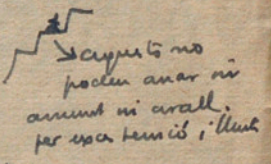 aquestò no
poden anar ni
amunt ni avall.
per exa tenció i llum